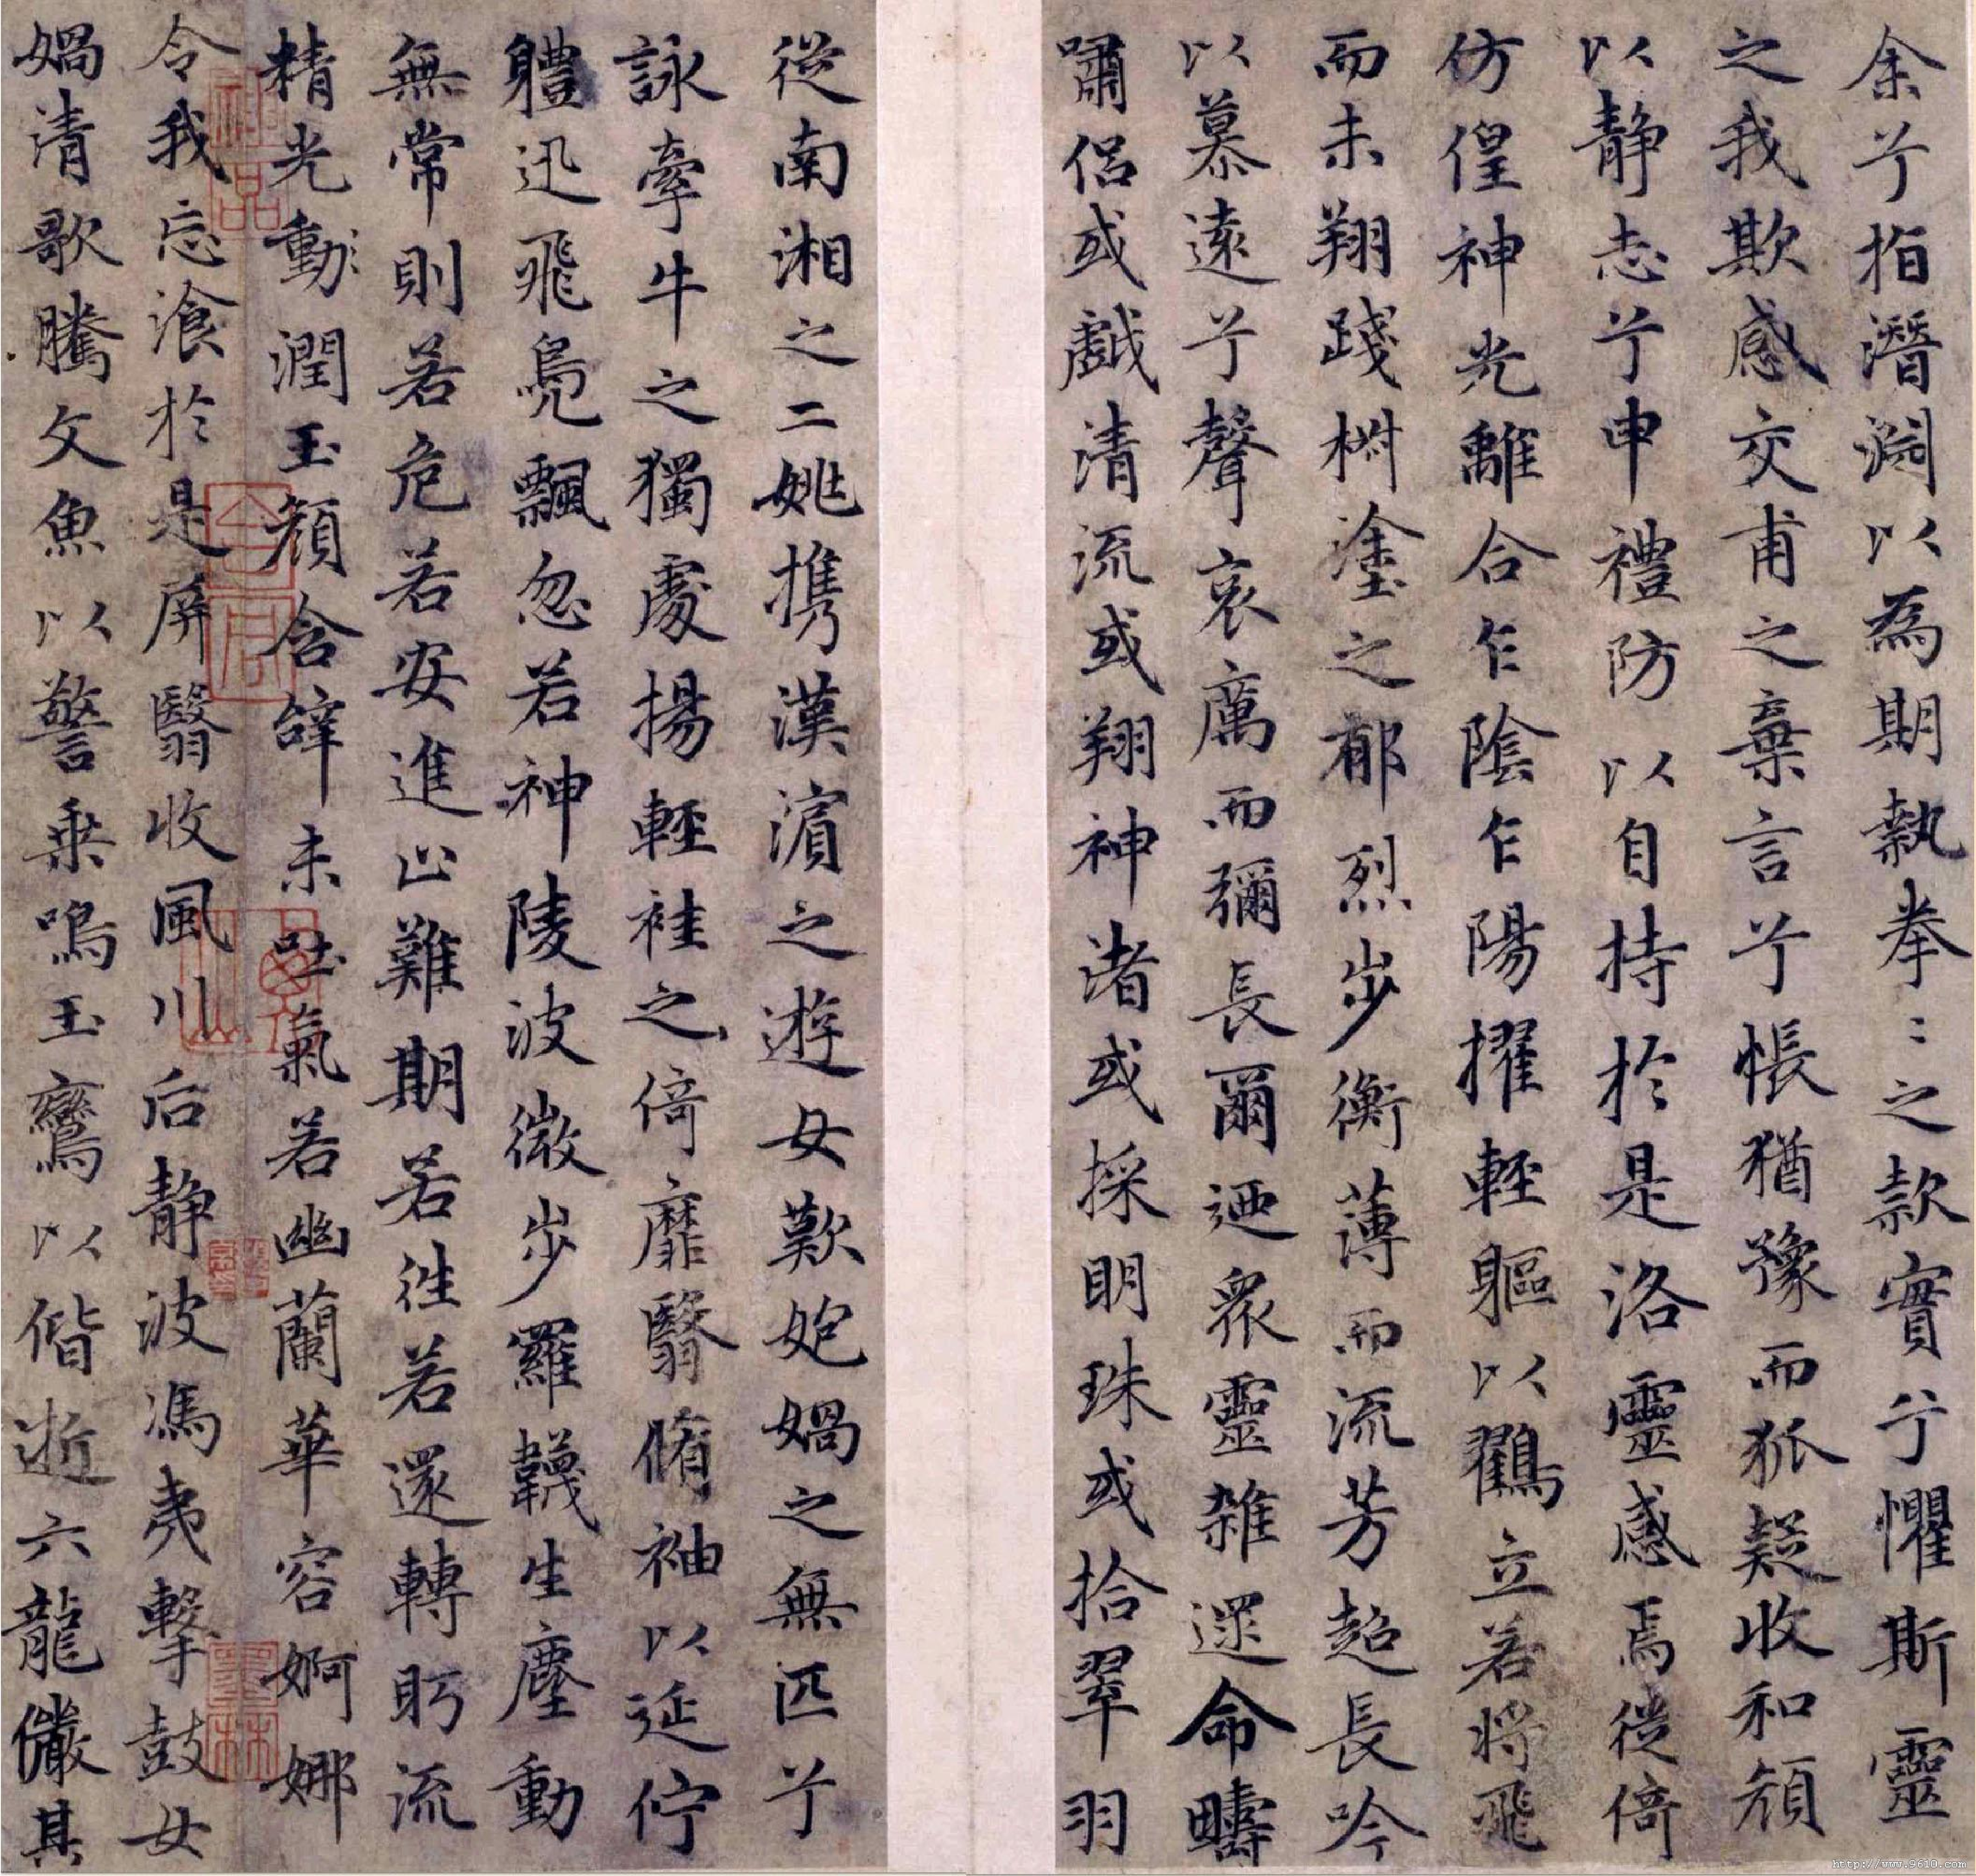 余兮指潛淵以為期執拳〻之款實兮懼斯靈
之我欺感交甫之棄言兮悵猶豫而狐疑收和顏
以靜志兮申禮防以自持於是洛靈感焉徙倚
仿偟神光離合乍陰乍陽擢輕軀以鶴立若將飛
而未翔踐椒塗之郁烈步衡薄而流芳超長吟
以慕遠兮聲哀厲而彌長爾迺眾靈雜遝命疇
嘯侶或戲清流或翔神渚或採明珠或拾翠羽
從南湘之二姚攜漢濱之遊女歎匏媧之無匹兮
詠牽牛之獨處揚輕袿之倚靡翳脩袖以延佇
體迅飛鳧飄忽若神陵波微步羅韈生塵動
無常則若危若安進止難期若往若還轉眄流
精光動潤玉顏含辭未吐氣若幽蘭華容婀娜
令我忘飡於是屏翳收風川后靜波馮夷擊鼓女
媧清歌騰文魚以警乘鳴玉鸞以偕逝六龍儼其
神品
墨林
http://www.9610.com